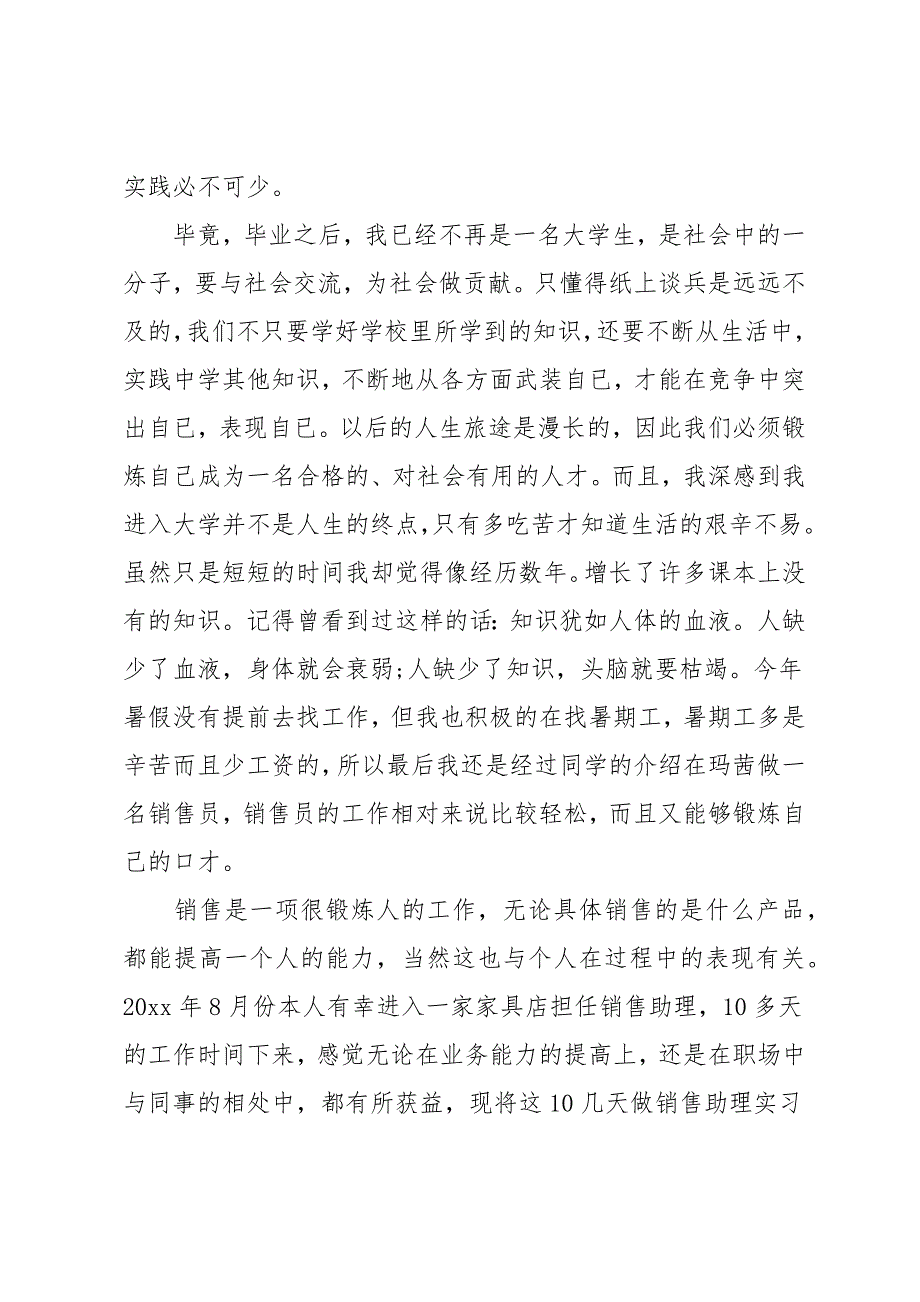 实践必不可少。
毕竟，毕业之后，我已经不再是一名大学生，是社会中的一
分子，要与社会交流，为社会做贡献。只懂得纸上谈兵是远远不
及的，我们不只要学好学校里所学到的知识，还要不断从生活中，
实践中学其他知识，不断地从各方面武装自已，才能在竞争中突
出自已，表现自已。以后的人生旅途是漫长的，因此我们必须锻
炼自己成为一名合格的、对社会有用的人才。而且，我深感到我
进入大学并不是人生的终点，只有多吃苦才知道生活的艰辛不易。
虽然只是短短的时间我却觉得像经历数年。增长了许多课本上没
有的知识。记得曾看到过这样的话：知识犹如人体的血液。人缺
少了血液，身体就会衰弱;人缺少了知识，头脑就要枯竭。今年
暑假没有提前去找工作，但我也积极的在找暑期工，暑期工多是
辛苦而且少工资的，所以最后我还是经过同学的介绍在玛茜做一
名销售员，销售员的工作相对来说比较轻松，而且又能够锻炼自
己的口才。
销售是一项很锻炼人的工作，无论具体销售的是什么产品，
都能提高一个人的能力，当然这也与个人在过程中的表现有关。
20xx 年 8 月份本人有幸进入一家家具店担任销售助理，10 多天
的工作时间下来，感觉无论在业务能力的提高上，还是在职场中
与同事的相处中，都有所获益，现将这 10 几天做销售助理实习